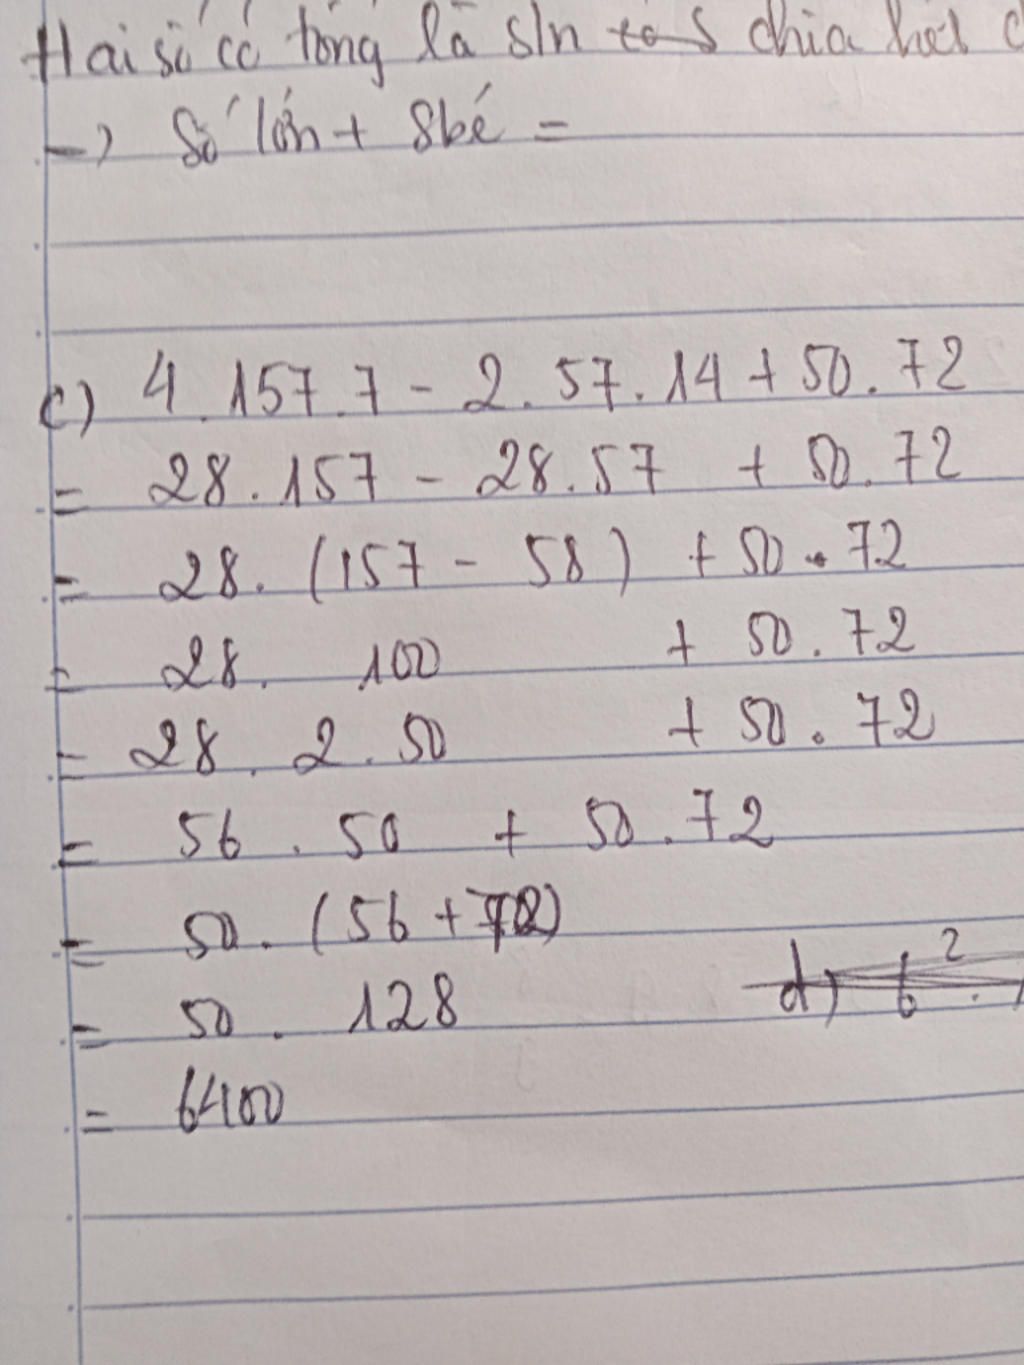 Hai số có tổng là sln chia hết
→ Số lớn + Sbé =
c) 4.157.7 - 2.57.14 + 50.72
= 28.157 - 28.57 + 50.72
= 28.(157 - 58) + 50.72
= 28. 100 + 50.72
= 28. 2.50 + 50.72
= 56.50 + 50.72
= 50.(56 + 72)
d) 6² .
= 50. 128
= 6400